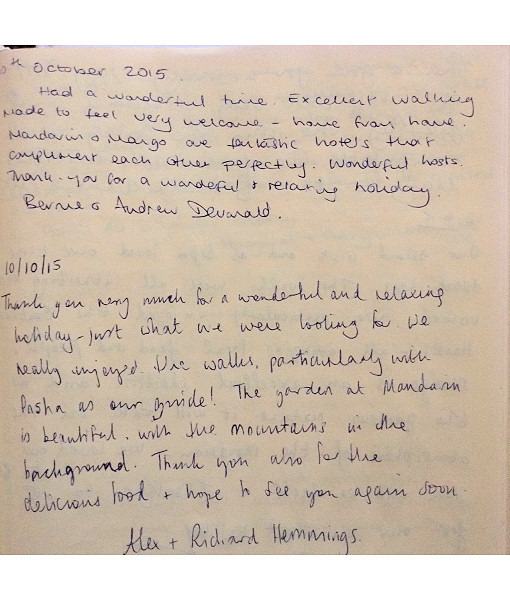 th October 2015.
Had a wonderful time. Excellent walking
Made to feel very welcome - home from home.
Mandarin & Mango are fantastic hotels that
complement each other perfectly. Wonderful hosts.
Thank-you for a wonderful & relaxing holiday.
Bernie & Andrew
10/10/15
Thank you very much for a wonderful and relaxing
holiday - just what we were looking for. We
really enjoyed the walks, particularly with
Pasha as our guide! The garden at Mandarin
is beautiful, with the mountains in the
background. Thank you also for the
delicious food + hope to see you again soon.
Alex + Richard Hemmings.